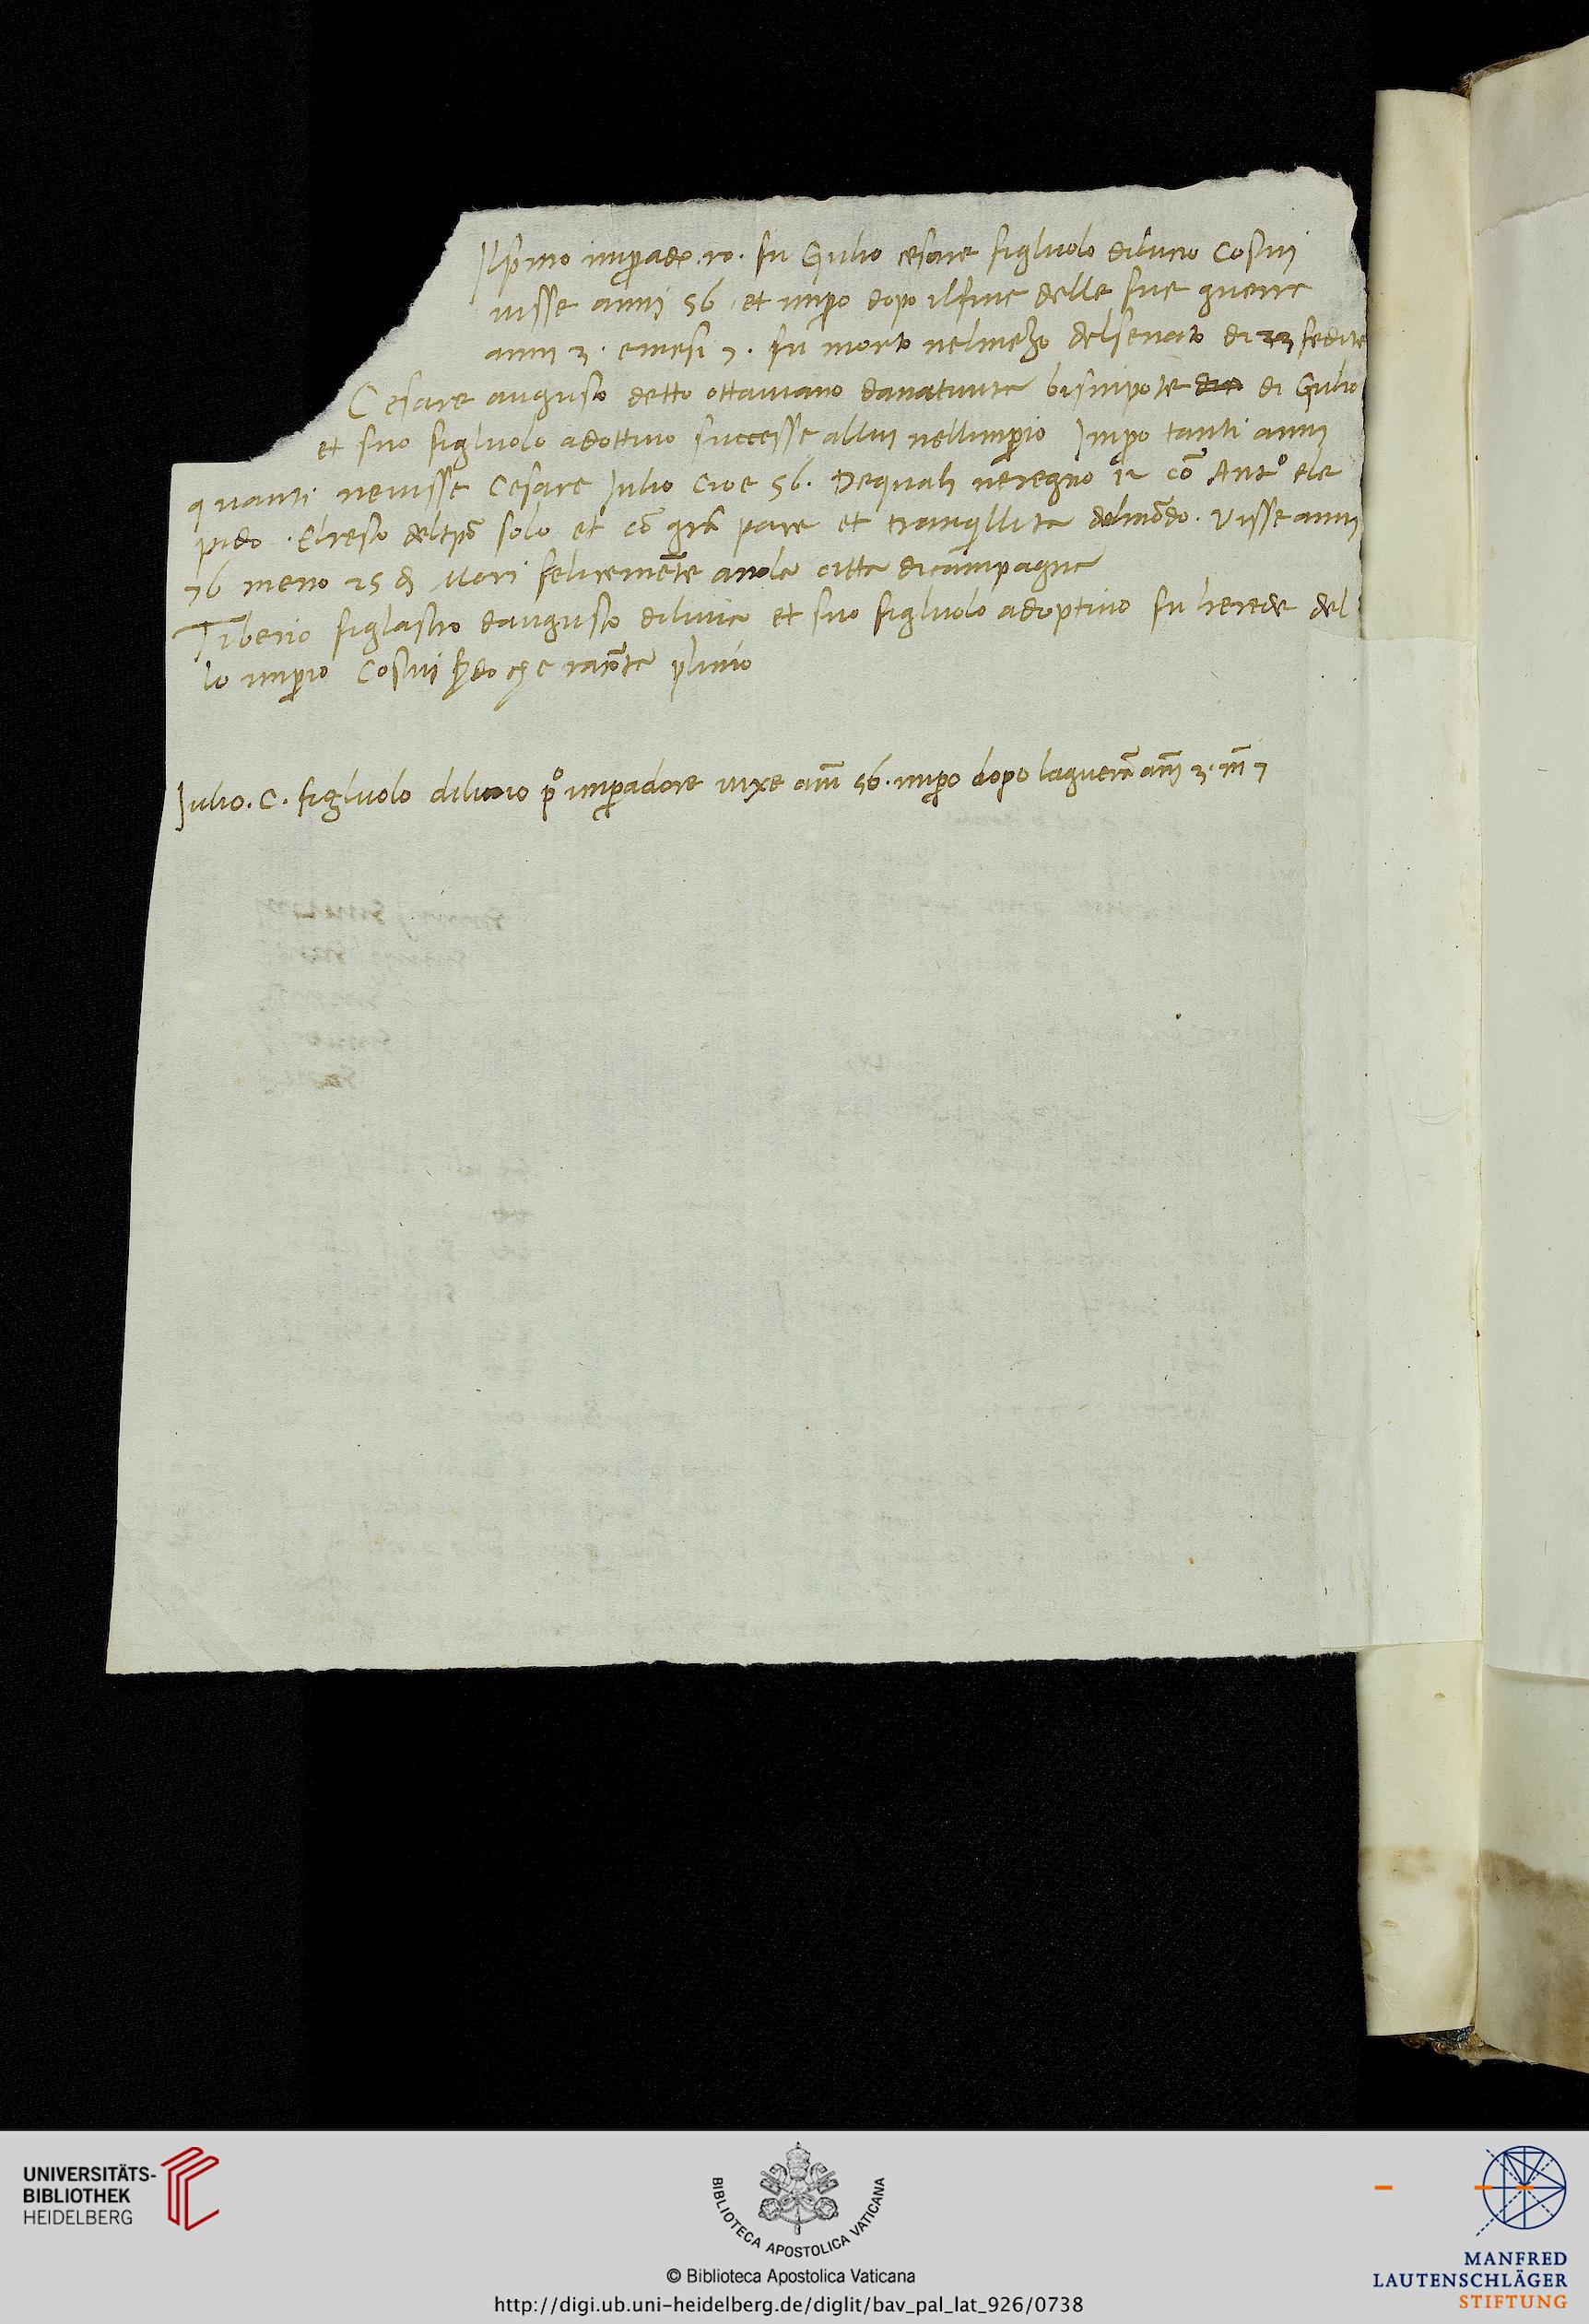 Il primo imperado. ro. fu Giulio cesare figliuolo dilucio Costui
uisse anni 56 . et impero dopo ilfine delle sue guerre
anni 3 . emesi 7 . fu morto nelmezo delsenato di 23 fedite
Cesare augusto detto ottauiano bisnipote di Giulio
et suo figliuolo adottiuo successe allui nellimperio Impero tanti anni
quanti neuisse Cesare Iulio Cioe 56 . Dequali neregno 12 cō Antº ele
pido . Elresto deltpō solo et cō grā pace et tranquillita delmōdo . Visse anni
76 meno 25 di Mori felicemēte anola citta dicampagna
Tiberio figliastro daugusto et suo figliuolo adoptiuo fu herede del
lo imperio Costui che racōta plinio
Iulio . C . figliuolo dilucio pº imperadore uixe anni 56 . impero dopo laguerra anni 3 . m 7
UNIVERSITÄTS-
BIBLIOTHEK
HEIDELBERG
BIBLIOTECA APOSTOLICA VATICANA
© Biblioteca Apostolica Vaticana
http://digi.ub.uni-heidelberg.de/diglit/bav_pal_lat_926/0738
MANFRED
LAUTENSCHLÄGER
STIFTUNG